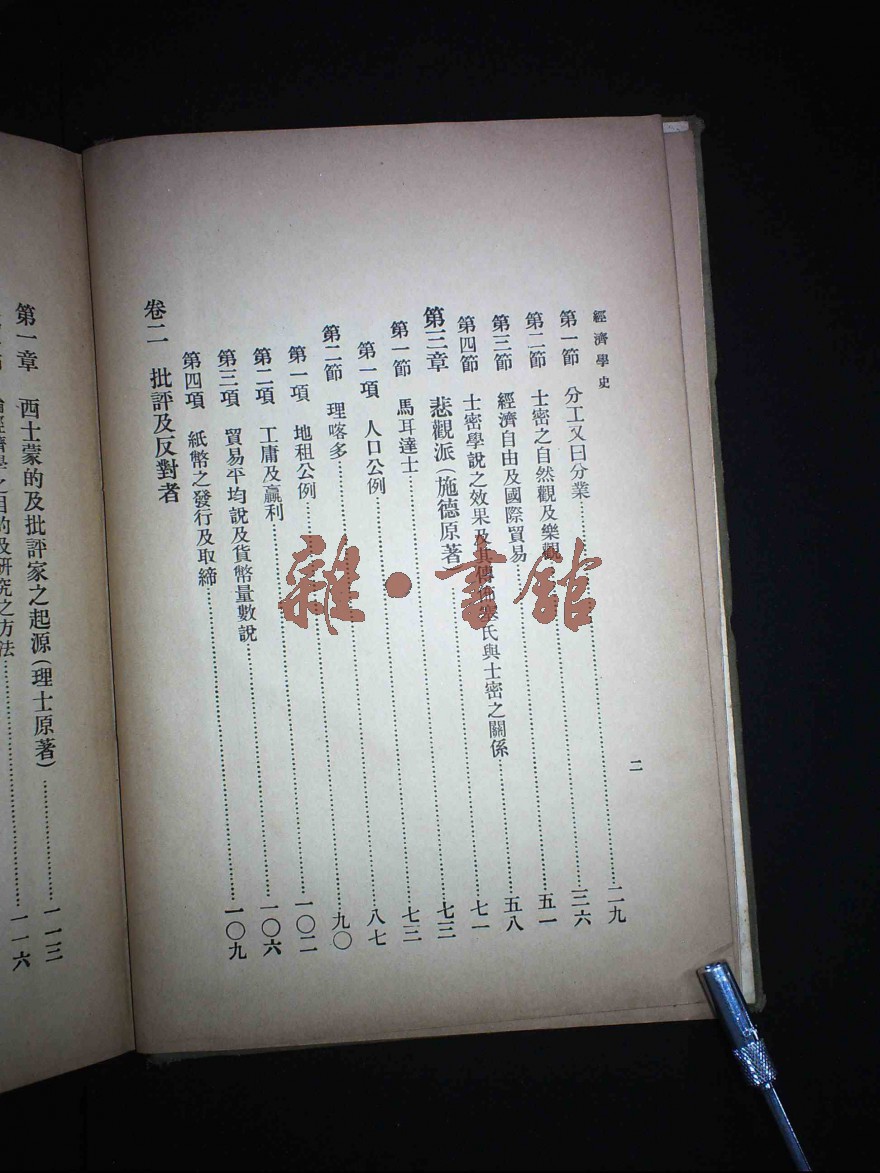 經濟學史
二
第一節 分工又曰分業……二九
第二節 士密之自然觀及樂觀……三六
第三節 經濟自由及國際貿易……五一
第四節 士密學說之效果及其傳佈塞氏與士密之關係……五八
第三章 悲觀派(施德原著)……七一
第一節 馬耳達士……七三
第一項 人口公例……七三
第二節 理喀多……八七
第一項 地租公例……九〇
第二項 工庸及贏利……一〇二
第三項 貿易平均說及貨幣量數說……一〇六
第四項 紙幣之發行及取締……一〇九
卷二 批評及反對者
第一章 西士蒙的及批評家之起源(理士原著)……一一三
節 經濟學之目的及研究之方法……一一六
雜·書館